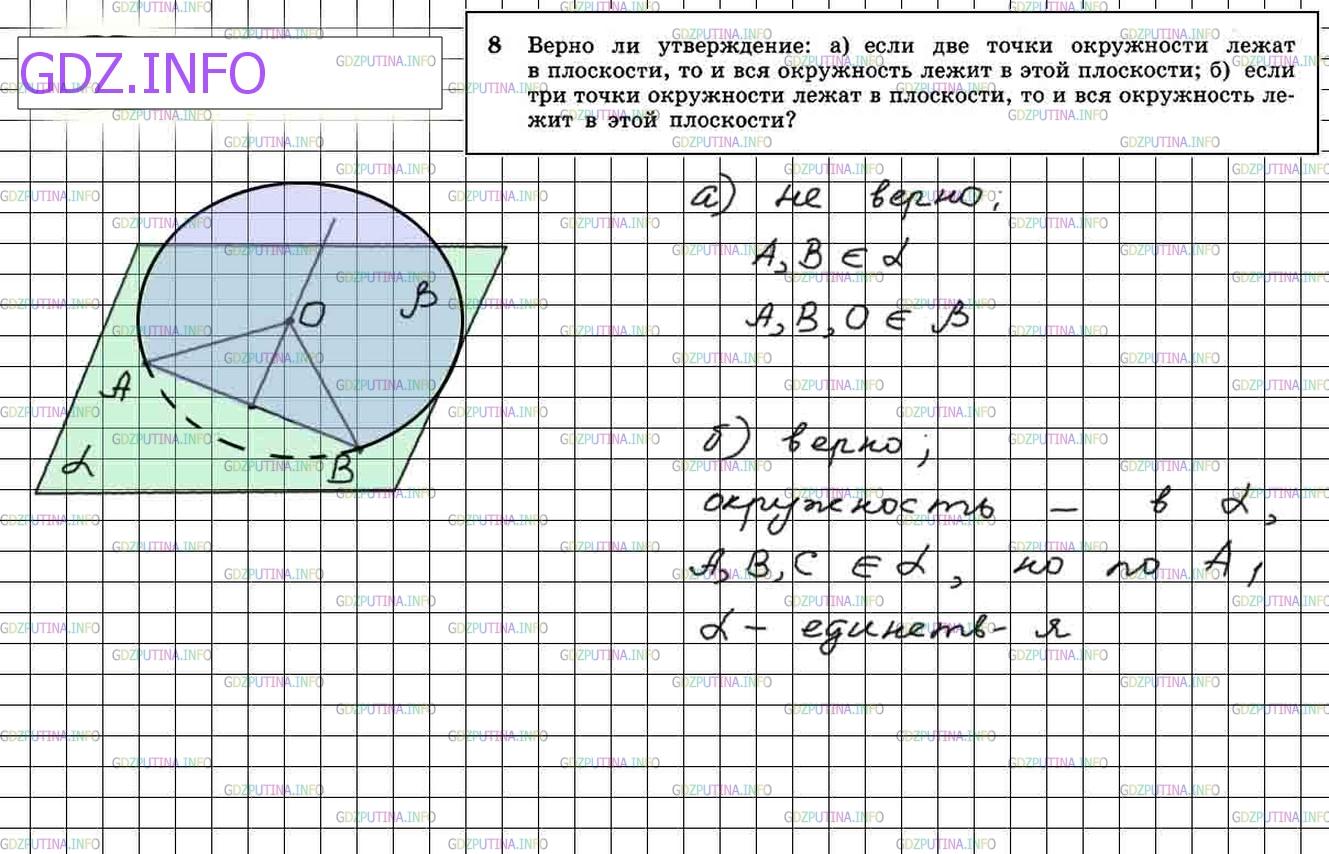 GDZ.INFO
8 Верно ли утверждение: а) если две точки окружности лежат
в плоскости, то и вся окружность лежит в этой плоскости; б) если
три точки окружности лежат в плоскости, то и вся окружность ле-
жит в этой плоскости?
а) не верно;
A, B ∈ α
A, B, O ∈ β
б) верно;
окружность – в α,
A, B, C ∈ α, но по A1
α – единств-я
O
β
A
α
B
GDZPUTINA.INFO